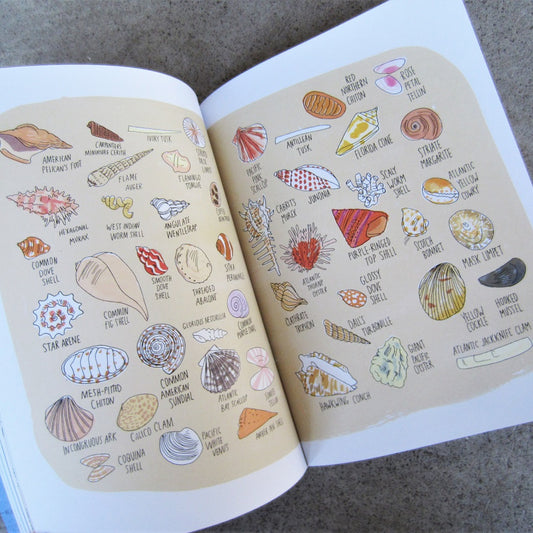 AMERICAN
PELICAN'S FOOT
CARPENTER'S
MINIATURE CERITH
IVORY TUSK
FLAME
AUGER
FLAMINGO
TONGUE
HEXAGONAL
MURAX
WEST INDIAN
WORM SHELL
ANGULATE
WENTLETRAP
COMMON
DOVE
SHELL
COMMON
FIG SHELL
SMOOTH
DOVE
SHELL
THREADED
ABALONE
STAR ARENE
GLORIOUS
COMMON
MESH-PITTED
CHITON
COMMON
AMERICAN
SUNDIAL
ATLANTIC
BAY SCALLOP
INCONGRUOUS ARK
CALICO CLAM
PACIFIC
WHITE
VENUS
AMBER PEN SHELL
COQUINA
SHELL
RED
NORTHERN
CHITON
ROSE
PETAL
TELLIN
PACIFIC
PINK
SCALLOP
ANTILLEAN
TUSK
FLORIDA CONE
STRIATE
MARGARITE
CABRIT'S
MUREX
JUNONIA
SCALY
WORM
SHELL
ATLANTIC
YELLOW
COWRY
ATLANTIC
THORNY
OYSTER
PURPLE-RINGED
TOP SHELL
SCOTCH
BONNET
MASK LIMPET
CLATHRATE
TROPHON
GLOSSY
DOVE
SHELL
YELLOW
COCKLE
HOOKED
MUSSEL
DALL'S
TURBONILLE
GIANT
PACIFIC
OYSTER
ATLANTIC JACKKNIFE CLAM
HAWKWING CONCH